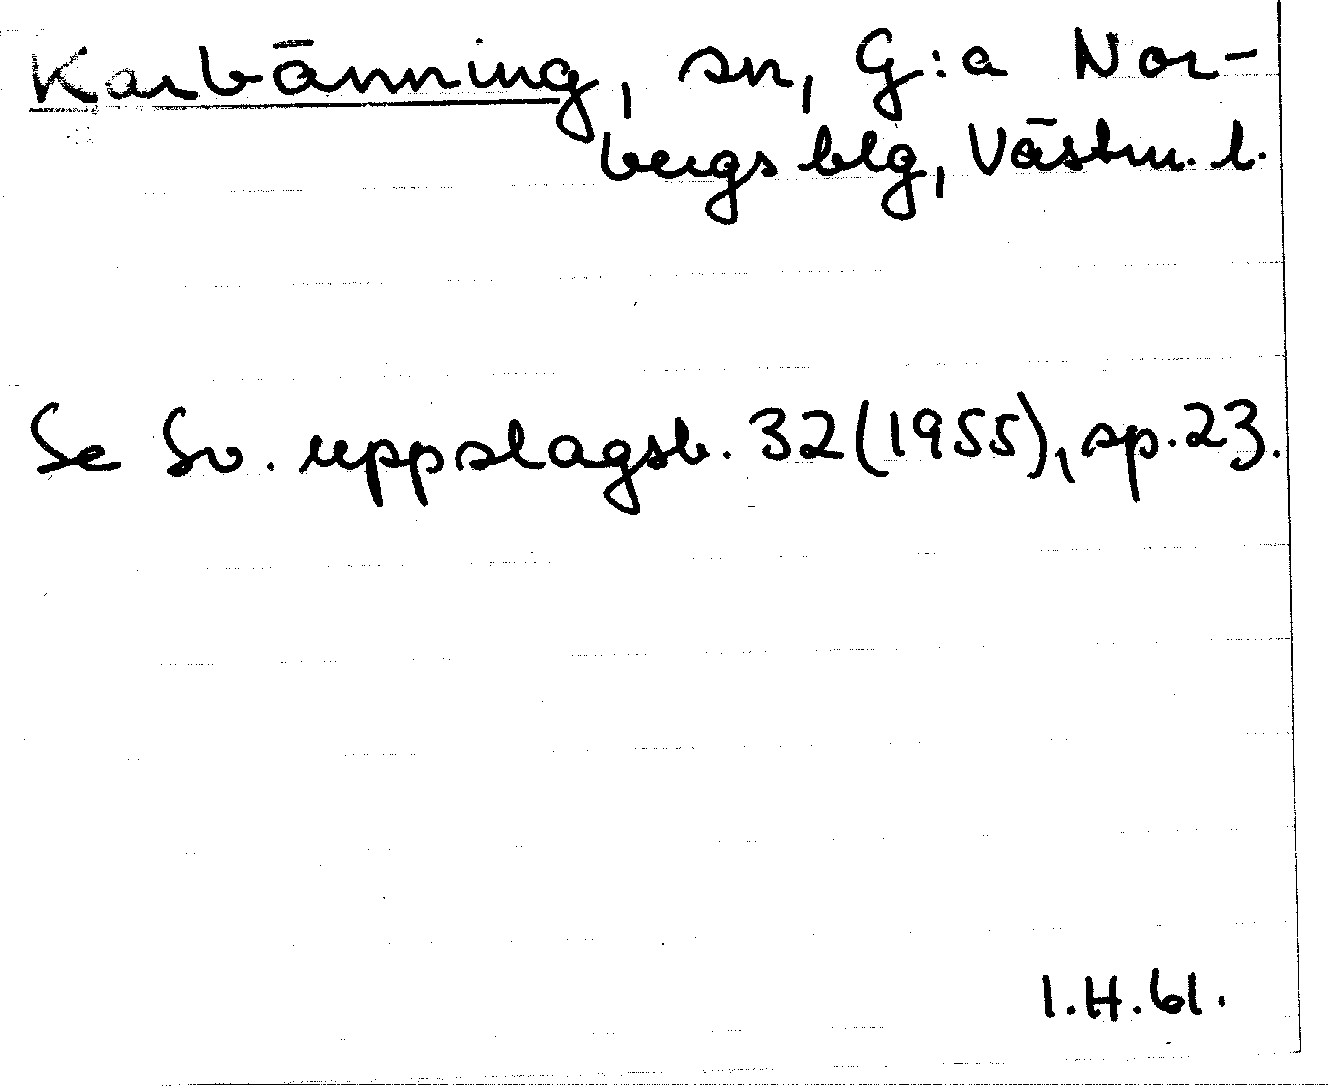 Karbänning, sn, G:a Nor-
bergs blg, Västm. l.
Se Sv. uppslagsb. 32 (1955), sp. 23.
I.H. 61.